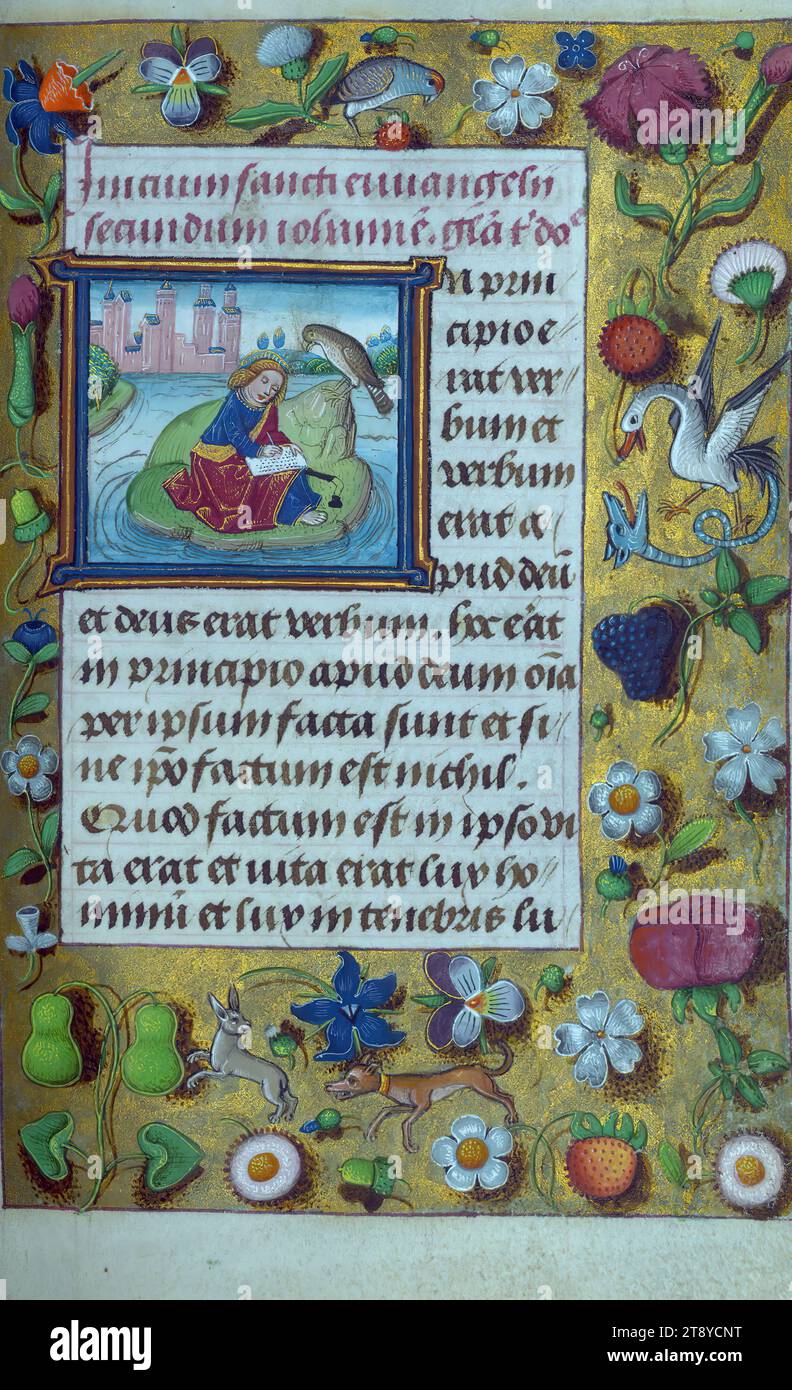 Inicium sancti euuangelii
secundum iohannē. gl̄a t' do^e
N prin
cipio e
rat ver
bum et
verbum
erat a
pud deū
et deus erat verbum. hoc eāt
in principio apud deum oīa
per ipsum facta sunt et si
ne ip̄o factum est nichil.
Quod factum est in ipso vi
ta erat et uita erat lux ho
minū et lux in tenebris lu
alamy
Image ID: 2T8YCNT
www.alamy.com